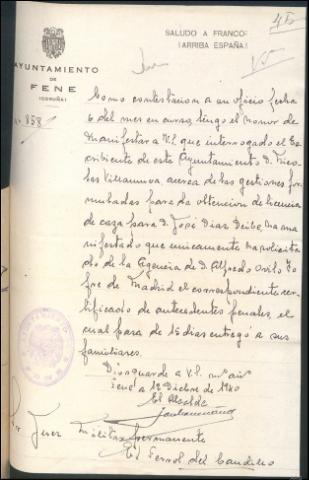 SALUDO A FRANCO
¡ARRIBA ESPAÑA!
AYUNTAMIENTO
DE
FENE
(CORUÑA)
Nº 858
Como contestacion a su oficio fecha
6 del mes en curso, tengo el honor de
manifestar a V.S. que interrogado el Es
cribiente de este Ayuntamiento D. Nico
las Villanueva, acerca de las gestiones for
muladas para la obtencion de licencia
de caza para D. José Diaz Deibe, ha ma
nifestado que unicamente ha solicita
do de la Agencia de D. Alfredo
de Madrid el correspondiente cer
tificado de antecedentes penales, el
cual hara de 15 dias entregó a sus
familiares.
Dios guarde a V.S. ms. as.
Fene a 12 Dicbre de 1940
El Alcalde
Sr. Juez Militar permanente
El Ferrol del Caudillo